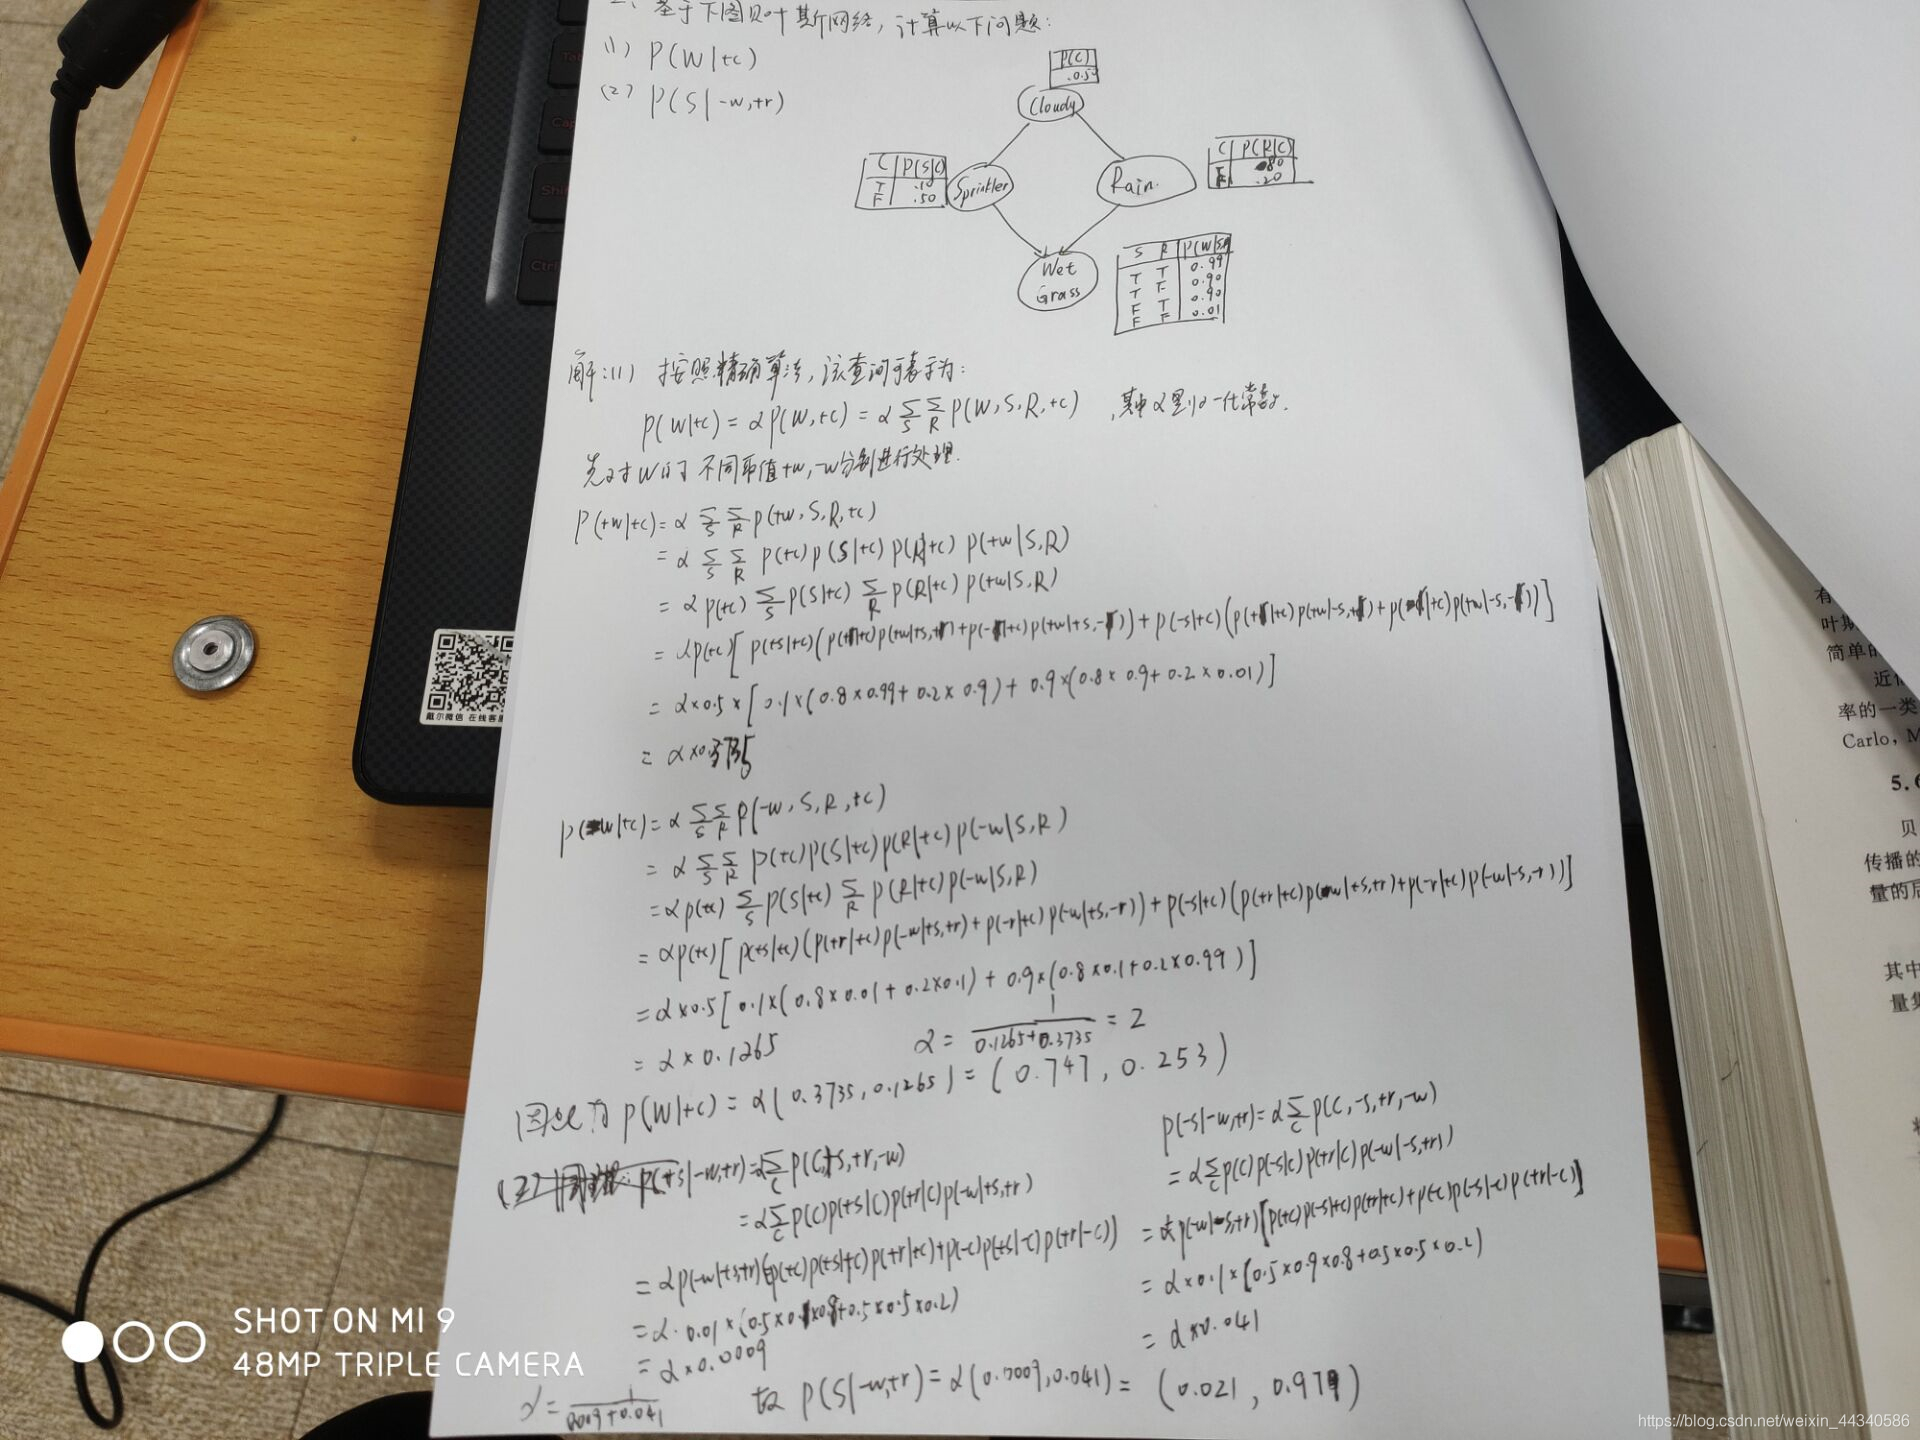 二、基于下图贝叶斯网络,计算以下问题:
(1) P(W|+c)
(2) P(S|-w,+r)
P(C)
.0.5
Cloudy
C P(S|C)
T .10
F .50
Sprinkler
Rain.
C P(R|C)
.80
F .20
Wet
Grass
S R P(W|S,R)
T T 0.99
T F 0.90
F T 0.90
F F 0.01
解:(1) 按照精确算法,该查询可表示为:
P(W|+c) = αP(W,+c) = α Σ_S Σ_R P(W,S,R,+c) ,其中α是归一化常数.
先对W的不同取值+w,-w分别进行处理.
P(+w|+c) = α Σ_S Σ_R P(+w,S,R,+c)
= α Σ_S Σ_R P(+c)P(S|+c)P(R|+c)P(+w|S,R)
= αP(+c) Σ_S P(S|+c) Σ_R P(R|+c)P(+w|S,R)
= αP(+c)[P(+s|+c)(P(+r|+c)P(+w|+s,+r)+P(-r|+c)P(+w|+s,-r))+P(-s|+c)(P(+r|+c)P(+w|-s,+r)+P(-r|+c)P(+w|-s,-r))]
= α×0.5×[0.1×(0.8×0.99+0.2×0.9)+0.9×(0.8×0.9+0.2×0.01)]
= α×0.3735
P(-w|+c) = α Σ_S Σ_R P(-w,S,R,+c)
= α Σ_S Σ_R P(+c)P(S|+c)P(R|+c)P(-w|S,R)
= αP(+c) Σ_S P(S|+c) Σ_R P(R|+c)P(-w|S,R)
= αP(+c)[P(+s|+c)(P(+r|+c)P(-w|+s,+r)+P(-r|+c)P(-w|+s,-r))+P(-s|+c)(P(+r|+c)P(-w|+s,+r)+P(-r|+c)P(-w|-s,-r))]
= α×0.5[0.1×(0.8×0.01+0.2×0.1)+0.9×(0.8×0.1+0.2×0.99)]
= α×0.1265 α = 1/(0.1265+0.3735) = 2
因此有 P(W|+c) = α(0.3735,0.1265) = (0.747,0.253)
(2) P(+s|-w,+r)=αΣ_C P(C,+s,+r,-w)
=αΣ_C P(C)P(+s|C)P(+r|C)P(-w|+s,+r)
=αP(-w|+s,+r)(P(+c)P(+s|+c)P(+r|+c)+P(-c)P(+s|-c)P(+r|-c)]
=α·0.01×(0.5×0.1×0.8+0.5×0.5×0.2)
=α×0.0009
α= 1/(0.0009+0.041)
P(-s|-w,+r)=αΣ_C P(C,-s,+r,-w)
=αΣ_C P(C)P(-s|C)P(+r|C)P(-w|-s,+r)
=αP(-w|-s,+r)[P(+c)P(-s|+c)P(+r|+c)+P(-c)P(-s|-c)P(+r|-c)]
=α×0.1×[0.5×0.9×0.8+0.5×0.5×0.2)
=α×0.041
故 P(S|-w,+r)=α(0.0009,0.041)=(0.021,0.979)
戴尔微信 在线客服
有
叶斯
简单的
近似
率的一类
Carlo, M
5.6
贝
传播的
量的后
其中
量集
SHOT ON MI 9
48MP TRIPLE CAMERA
https://blog.csdn.net/weixin_44340586